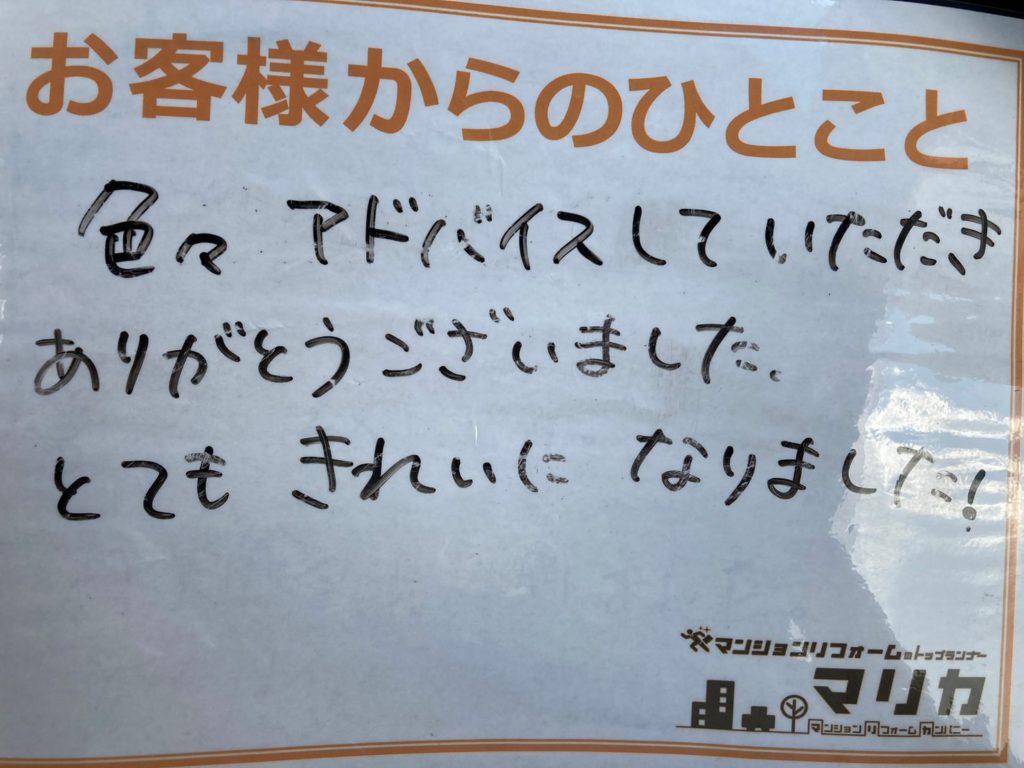 お客様からのひとこと
色々 アドバイスして いただき
ありがとうございました.
とても きれいに なりました!
マンションリフォームのトップランナー
マリカ
マンションリフォームカンパニー